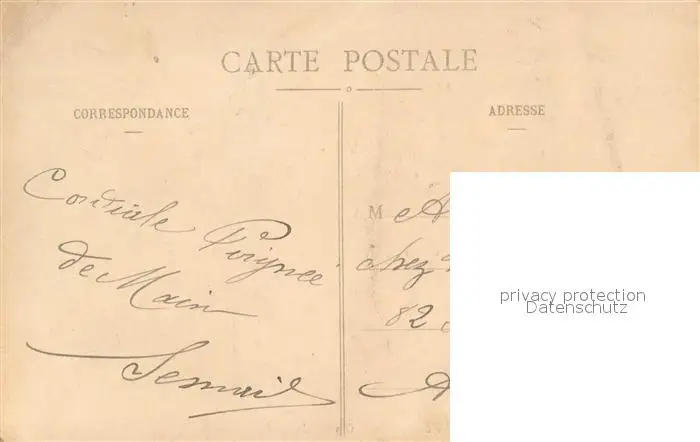 CARTE POSTALE
CORRESPONDANCE
ADRESSE
Cordiale Poignée
de Main
M A
chez
82
A
privacy protection
Datenschutz